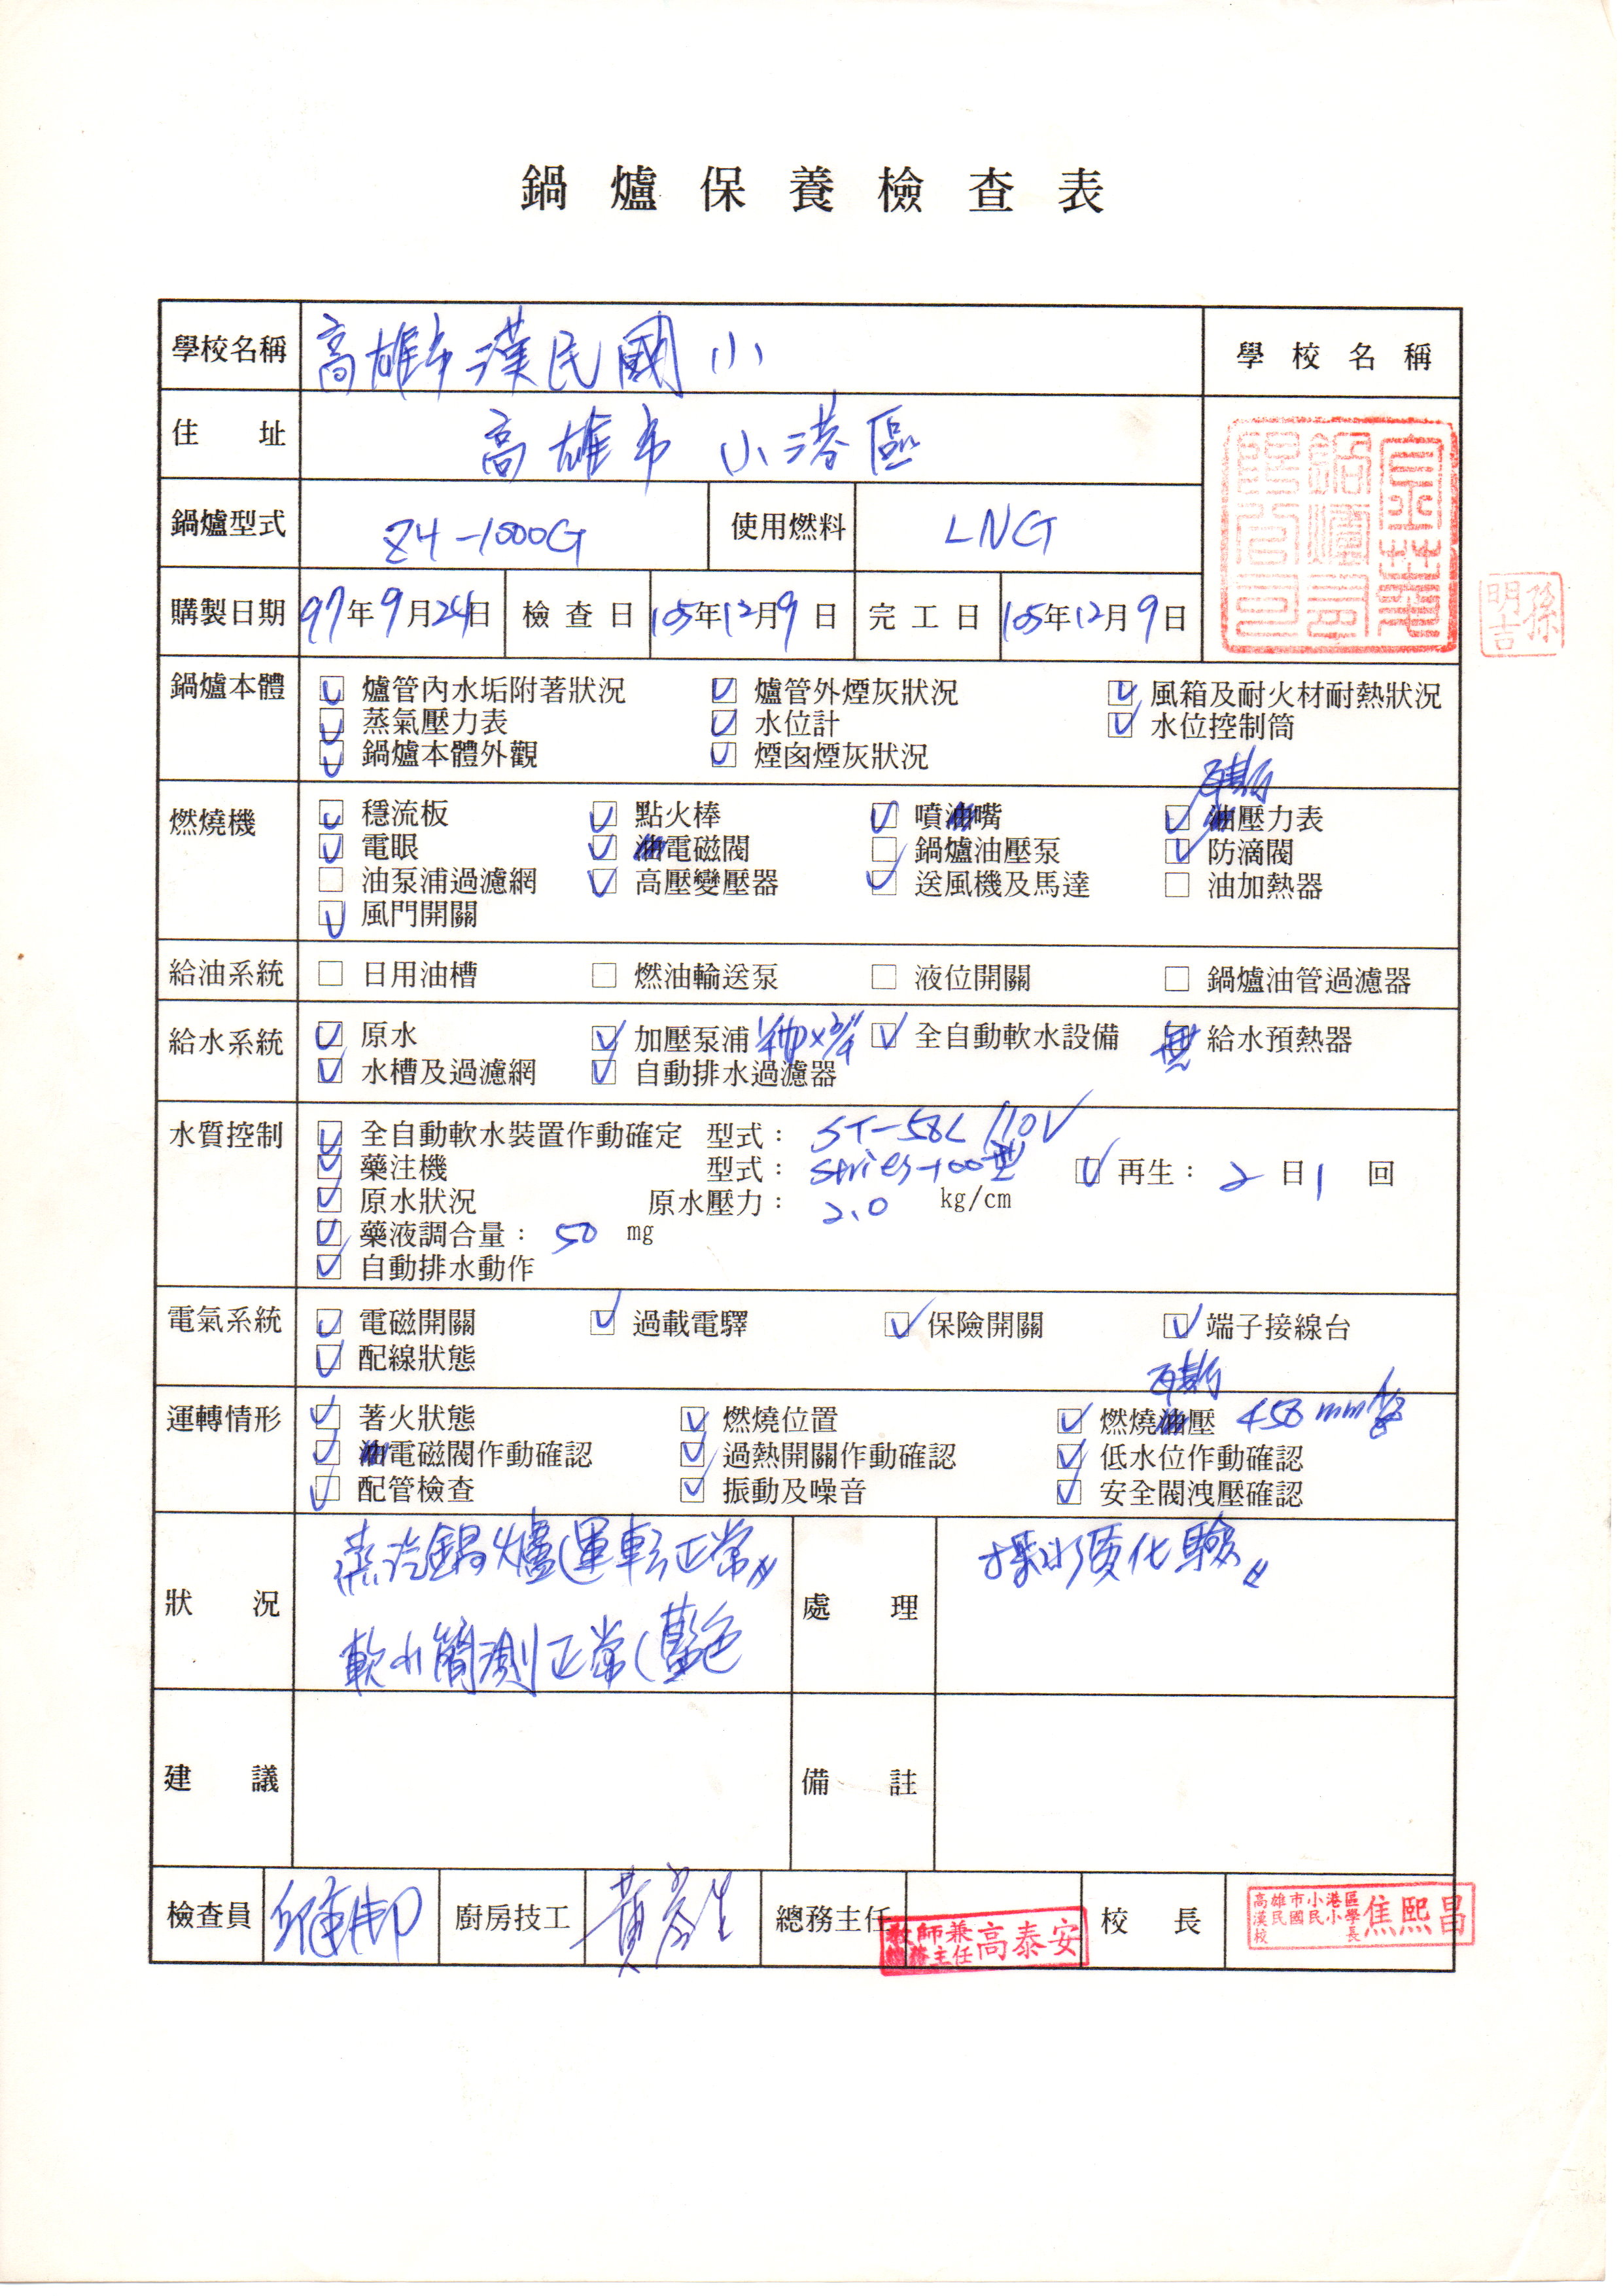 鍋爐保養檢查表
學校名稱 高雄市漢民國小 學校名稱
住址 高雄市小港區
鍋爐型式 Z4-1000G 使用燃料 LNG
購製日期 97年9月24日 檢查日 105年12月9日 完工日 105年12月9日
孫明吉
鍋爐本體 ☑ 爐管內水垢附著狀況 ☑ 爐管外煙灰狀況 ☑ 風箱及耐火材耐熱狀況
☑ 蒸氣壓力表 ☑ 水位計 ☑ 水位控制筒
☑ 鍋爐本體外觀 ☑ 煙囪煙灰狀況
瓦斯
燃燒機 ☑ 穩流板 ☑ 點火棒 ☑ 噴嘴 ☑ 壓力表
☑ 電眼 ☑ 電磁閥 □ 鍋爐油壓泵 ☑ 防滴閥
□ 油泵浦過濾網 ☑ 高壓變壓器 ☑ 送風機及馬達 □ 油加熱器
☑ 風門開關
給油系統 □ 日用油槽 □ 燃油輸送泵 □ 液位開關 □ 鍋爐油管過濾器
給水系統 ☑ 原水 ☑ 加壓泵浦 ☑ 全自動軟水設備 無 給水預熱器
☑ 水槽及過濾網 ☑ 自動排水過濾器
水質控制 ☑ 全自動軟水裝置作動確定 型式： ST-58L 110V
☑ 藥注機 型式： Series-100型 ☑ 再生： 2日1回
☑ 原水狀況 原水壓力： 2.0 kg/cm
☑ 藥液調合量： 50 mg
☑ 自動排水動作
電氣系統 ☑ 電磁開關 ☑ 過載電驛 ☑ 保險開關 ☑ 端子接線台
☑ 配線狀態
瓦斯
運轉情形 ☑ 著火狀態 ☑ 燃燒位置 ☑ 燃燒壓 450 mm
☑ 電磁閥作動確認 ☑ 過熱開關作動確認 ☑ 低水位作動確認
☑ 配管檢查 ☑ 振動及噪音 ☑ 安全閥洩壓確認
狀況 蒸汽鍋爐運転正常〃 處理 採水須化驗〃
軟水簡測正常(藍色
建議 備註
檢查員 廚房技工 總務主任 教師兼總務主任高泰安 校長 高雄市小港區漢民國民小學校長焦熙昌